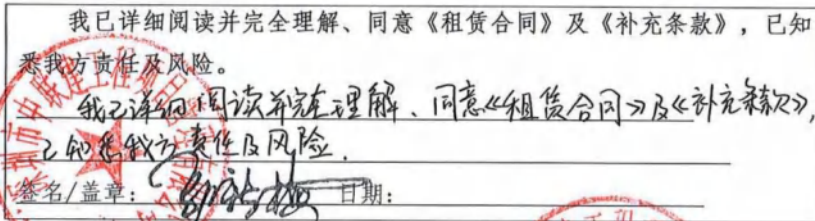 我已详细阅读并完全理解、同意《租赁合同》及《补充条款》，已知
悉我方责任及风险。
我已详细阅读并完全理解、同意《租赁合同》及《补充条款》，
已知悉我方责任及风险.
签名/盖章： 日期：
深圳市中联建工程项目